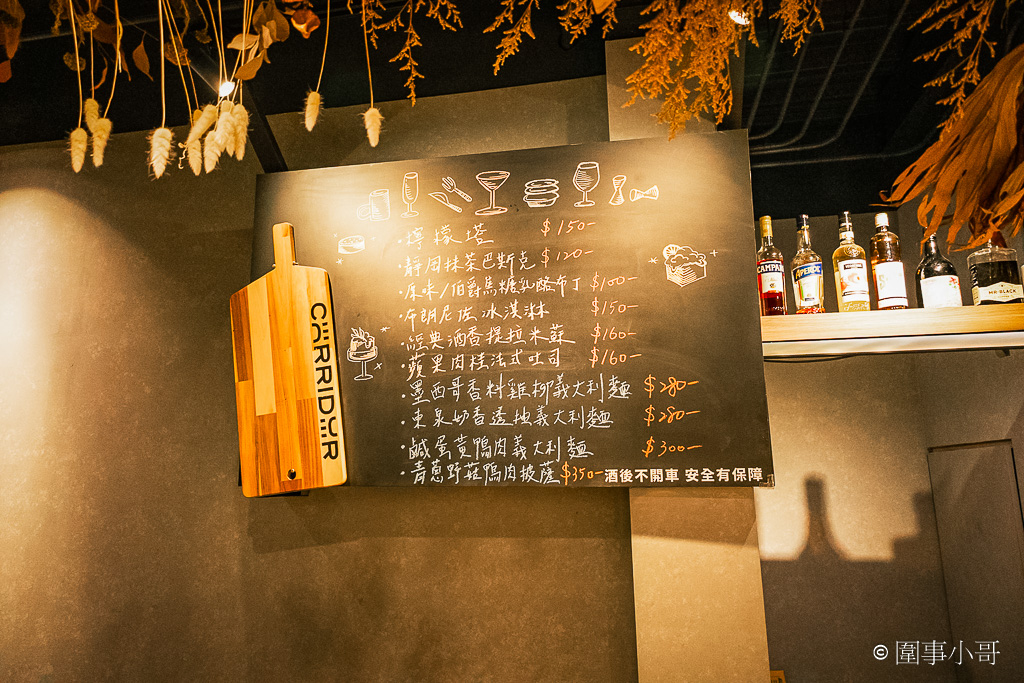 ·檸檬塔 $150-
·靜岡抹茶巴斯克 $120-
·原味/伯爵焦糖乳酪布丁 $100-
·布朗尼佐冰淇淋 $150-
·經典酒香提拉米蘇 $160-
·蘋果肉桂法式吐司 $160-
·墨西哥香料雞柳義大利麵 $280-
·東泉奶香透抽義大利麵 $280-
·鹹蛋黃鴨肉義大利麵 $300-
·青蔥野菇鴨肉披薩 $350-
酒後不開車 安全有保障
CORRIDOR
CAMPARI
APEROL
MR BLACK
© 圍事小哥